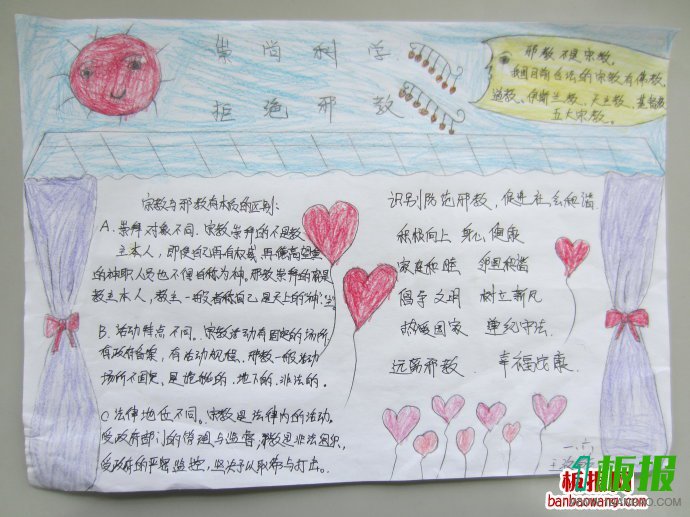 崇尚科学
拒绝邪教
邪教不是宗教,
我国目前合法的宗教有佛教,
道教、伊斯兰教、天主教、基督教
五大宗教。
宗教与邪教有本质的区别:
A、崇拜对象不同。宗教崇拜的不是教
主本人,即使自己再有权威,再德高望重
的神职人员也不得自称为神。邪教崇拜的就是
教主本人,教主一般者称自己是天上的神
B、活动特点不同。宗教活动有固定的场所
有政府备案,有活动规程,邪教一般活动
场所不固定,是诡秘的、地下的、非法的。
C、法律地位不同。宗教是法律内的活动。
受政府部门的管理与监督,邪教是非法组织
受政府的严密监控,坚决予以取缔与打击。
识别防范邪教,促进社会和谐
积极向上 身心健康
家庭和睦 邻里和谐
倡导文明 树立新风
热爱国家 遵纪守法
远离邪教 幸福安康
一、六
王
板报
板报网
banbaowang.com